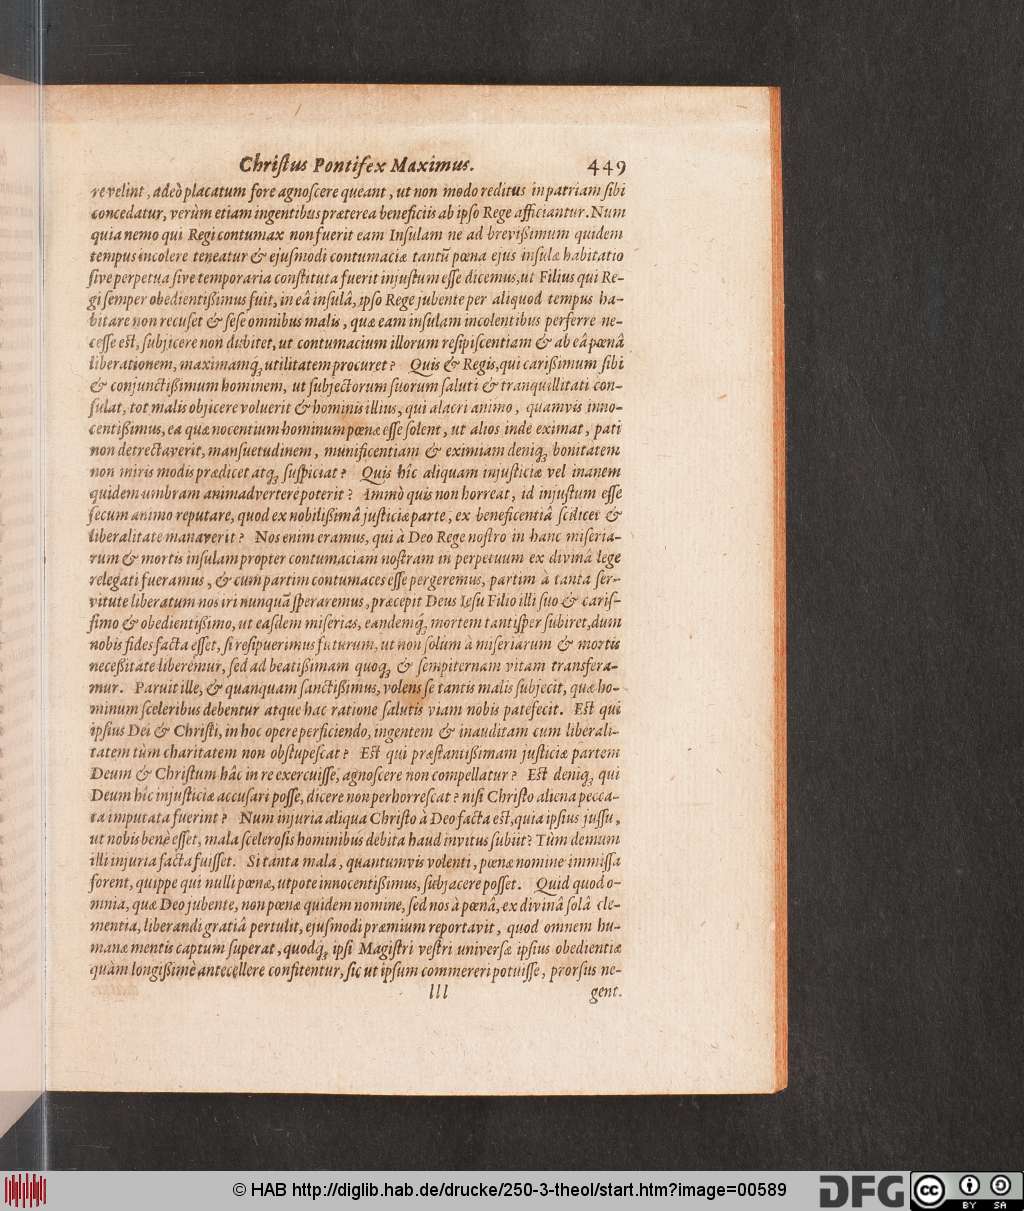 Chriſtus Pontifex Maximus. 449
re velint, adeò placatum fore agnoſcere queant, ut non modo reditus in patriam ſibi
concedatur, verùm etiam ingentibus præterea beneficiis ab ipſo Rege afficiantur. Num
quia nemo qui Regi contumax non fuerit eam Inſulam ne ad brevißimum quidem
tempus incolere teneatur & ejuſmodi contumaciæ tantũ pœna ejus inſulæ habitatio
ſive perpetua ſive temporaria conſtituta fuerit injuſtum eſſe dicemus, ut Filius qui Re-
gi ſemper obedientißimus fuit, in eâ inſulâ, ipſo Rege jubente per aliquod tempus ha-
bitare non recuſet & ſeſe omnibus malis, quæ eam inſulam incolentibus perferre ne-
ceſſe eſt, ſubjicere non dubitet, ut contumacium illorum reſipiſcentiam & ab eâ pœnâ
liberationem, maximamq́; utilitatem procuret? Quis & Regis, qui carißimum ſibi
& conjunctißimum hominem, ut ſubjectorum ſuorum ſaluti & tranquillitati con-
ſulat, tot malis objicere voluerit & hominis illius, qui alacri animo, quamvis inno-
centißimus, ea quæ nocentium hominum pœnæ eſſe ſolent, ut alios inde eximat, pati
non detrectaverit, manſuetudinem, munificentiam & eximiam deniq; bonitatem
non miris modis prædicet atq; ſuſpiciat? Quis hîc aliquam injuſticiæ vel inanem
quidem umbram animadvertere poterit? Immò quis non horreat, id injuſtum eſſe
ſecum animo reputare, quod ex nobilißimâ juſticiæ parte, ex beneficentiâ ſcilicet &
liberalitate manaverit? Nos enim eramus, qui à Deo Rege noſtro in hanc miſeria-
rum & mortis inſulam propter contumaciam noſtram in perpetuum ex divinâ lege
relegati fueramus, & cum partim contumaces eſſe pergeremus, partim à tanta ſer-
vitute liberatum nos iri nunquã ſperaremus, præcepit Deus Ieſu Filio illi ſuo & cariſ-
ſimo & obedientißimo, ut eaſdem miſerias, eandemq́; mortem tantiſper ſubiret, dum
nobis fides facta eſſet, ſi reſipuerimus futurum, ut non ſolùm à miſeriarum & mortis
neceßitate liberemur, ſed ad beatißimam quoq; & ſempiternam vitam transfera-
mur. Paruit ille, & quanquam ſanctißimus, volens ſe tantis malis ſubjecit, quæ ho-
minum ſceleribus debentur atque hac ratione ſalutis viam nobis patefecit. Eſt qui
ipſius Dei & Chriſti, in hoc opere perficiendo, ingentem & inauditam cum liberali-
tatem tùm charitatem non obſtupeſcat? Eſt qui præſtantißimam juſticiæ partem
Deum & Chriſtum hâc in re exercuiſſe, agnoſcere non compellatur? Eſt deniq; qui
Deum hîc injuſticiæ accuſari poſſe, dicere non perhorreſcat? niſi Chriſto aliena pecca-
ta imputata fuerint? Num injuria aliqua Chriſto à Deo facta eſt, quia ipſius juſſu,
ut nobis benè eſſet, mala ſceleroſis hominibus debita haud invitus ſubiit? Tùm demum
illi injuria facta fuiſſet. Si tanta mala, quantumvis volenti, pœnæ nomine immiſſa
forent, quippe qui nulli pœnæ, utpote innocentißimus, ſubjacere poſſet. Quid quod o-
mnia, quæ Deo jubente, non pœnæ quidem nomine, ſed nos à pœnâ, ex divinâ ſolâ cle-
mentia, liberandi gratiâ pertulit, ejuſmodi præmium reportavit, quod omnem hu-
manæ mentis captum ſuperat, quodq́; ipſi Magiſtri veſtri univerſæ ipſius obedientiæ
quàm longißimè antecellere confitentur, ſic ut ipſum commereri potuiſſe, prorſus ne-
lll gent.
© HAB http://diglib.hab.de/drucke/250-3-theol/start.htm?image=00589
DFG
cc BY SA